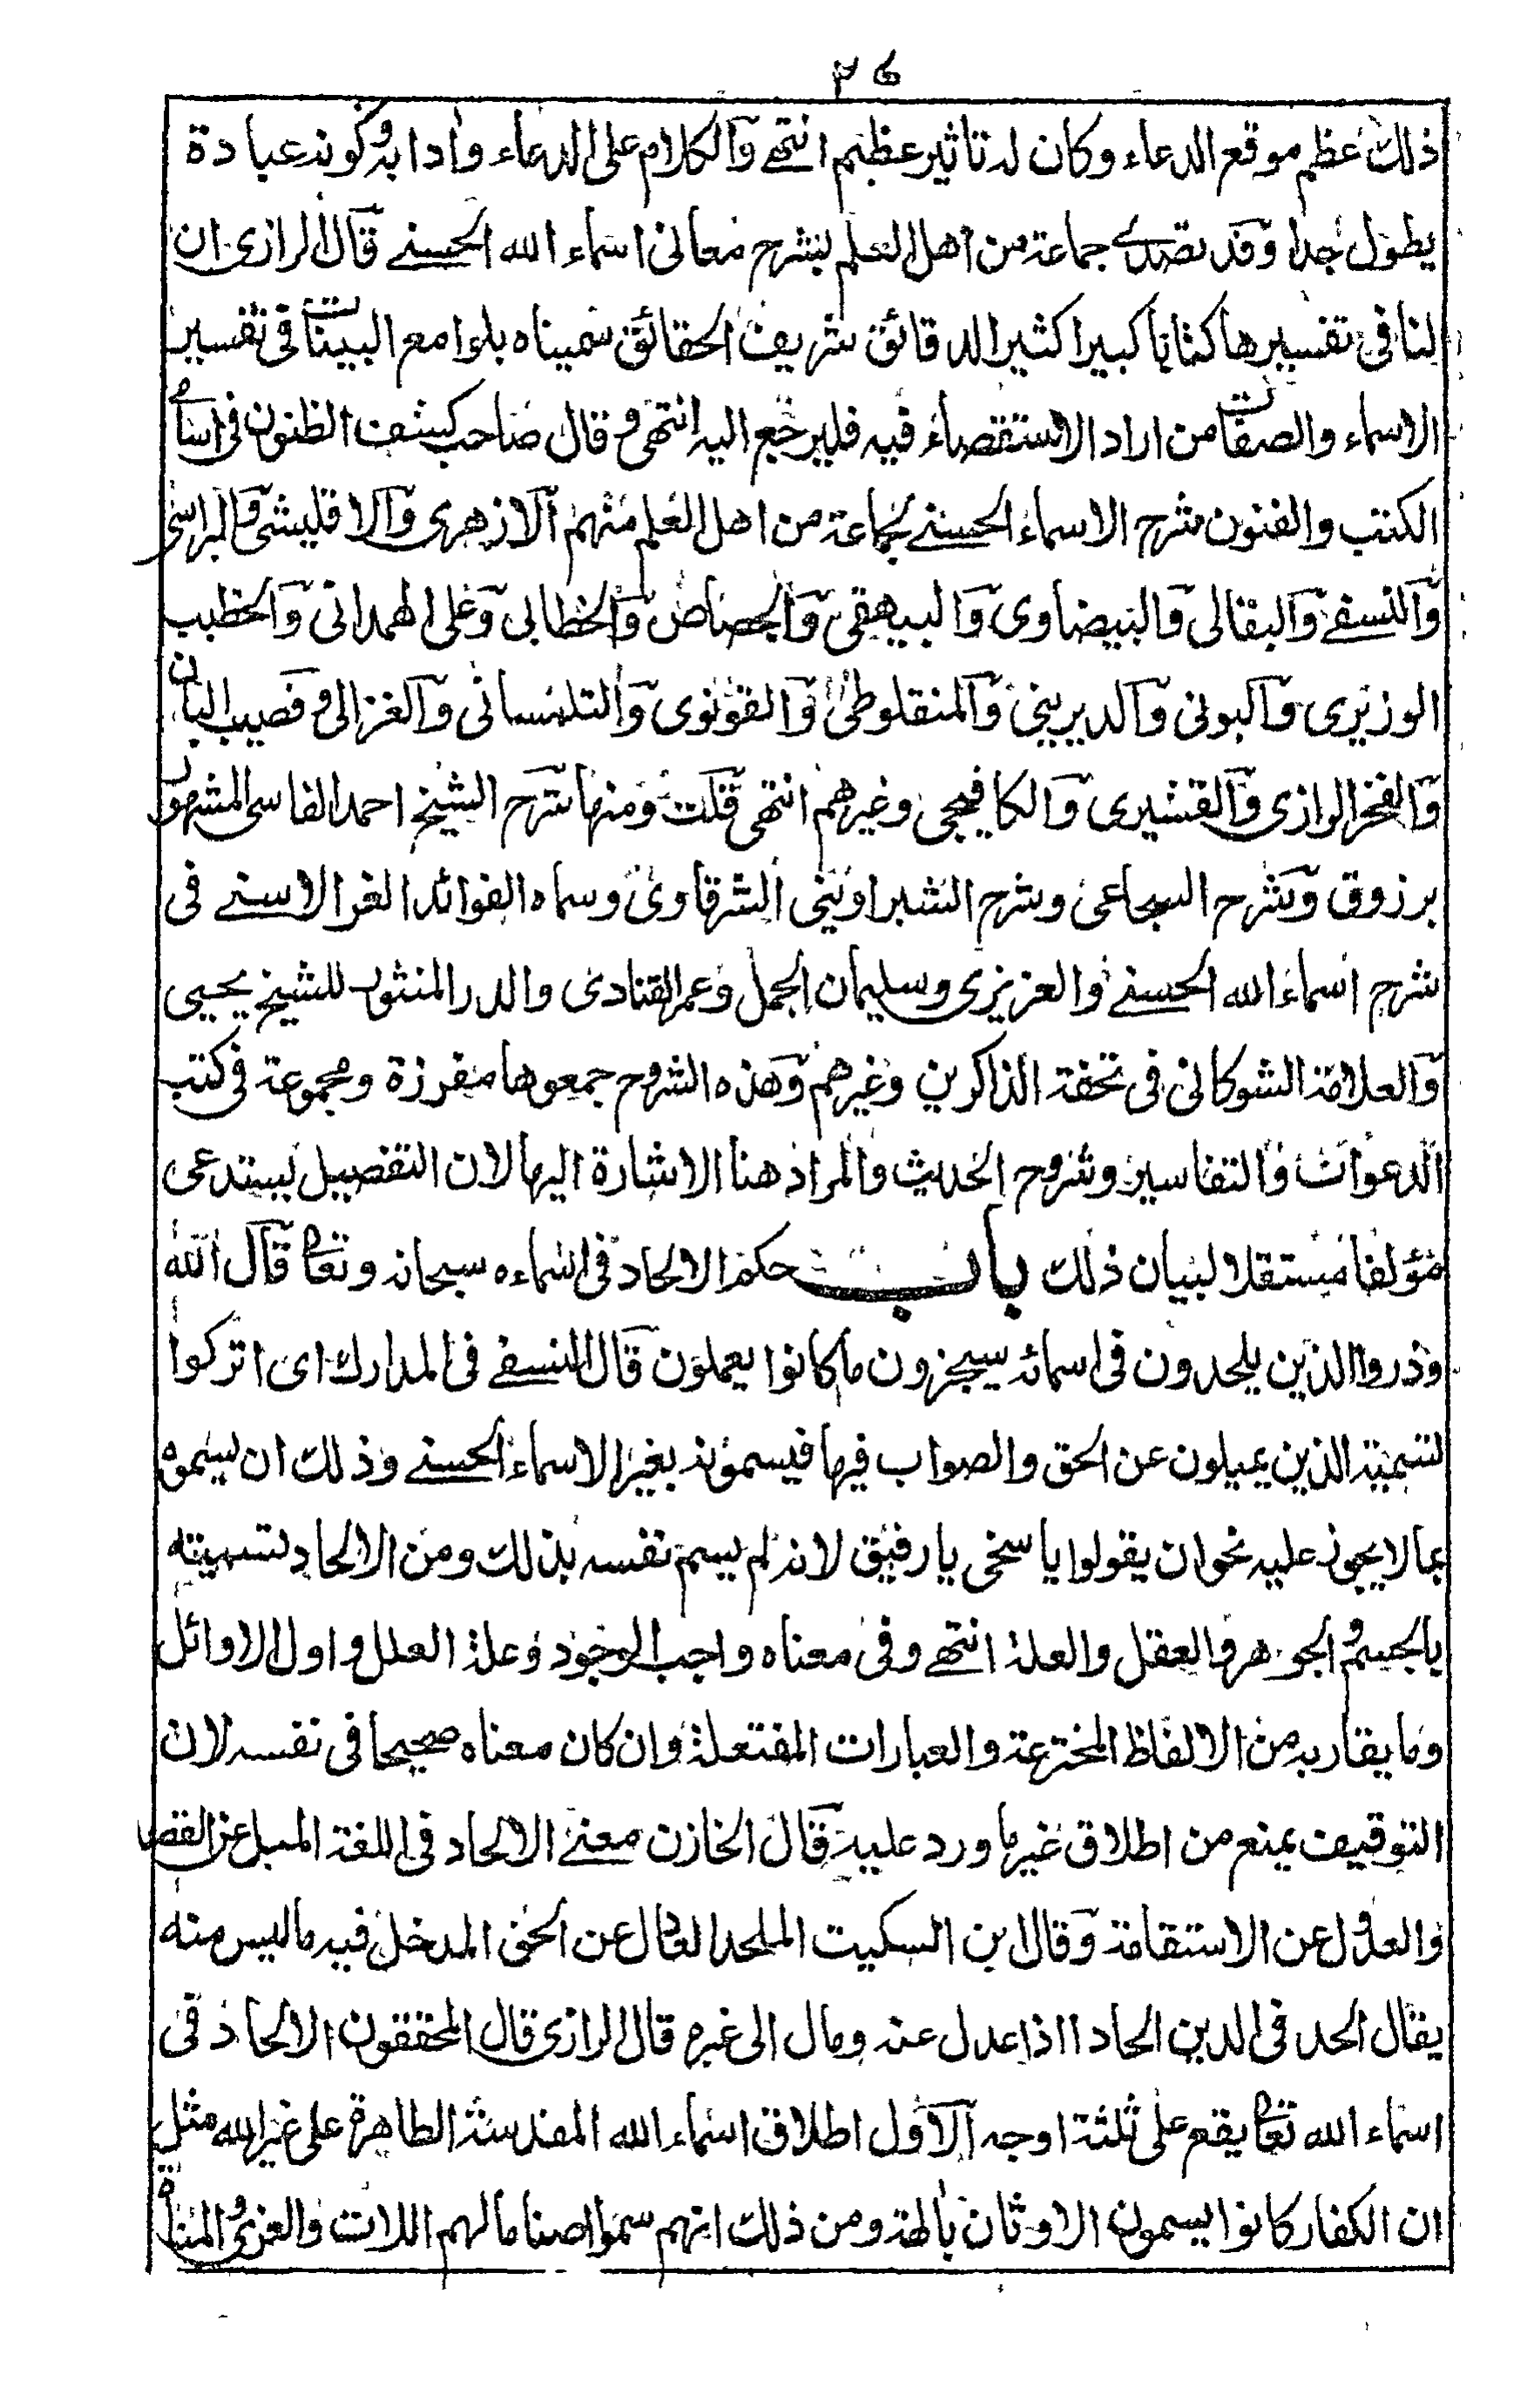 ٢٦
ذلك عظم موقع الدعاء وكان له تاثير عظيم انتهى والكلام على الدعاء وادابه وكونه عبادة
يطول جدا وقد تصدى جماعة من اهل العلم بشرح معانى اسماء الله الحسنى قال الرازى ان
لنا فى تفسيرها كتابا كبيرا كثير الدقائق شريف الحقائق سميناه بلوامع البينات فى تفسير
الاسماء والصفات من اراد الاستقصاء فيه فليرجع اليه انتهى وقال صاحب كشف الظنون فى اسامى
الكتب والفنون شرح الاسماء الحسنى لجماعة من اهل العلم منهم الازهرى والاقليشى والمراسى
والنسفى والبقالى والبيضاوى والبيهقى والجصاص والخطابى وعلى الهمدانى والخطيب
الوزيرى والبونى والديرينى والمنفلوطى والقونوى والتلمسانى والغزالى وقصيب البان
والفخر الرازى والقشيرى والكافيجى وغيرهم انتهى قلت ومنها شرح الشيخ احمد الفاسى المشهور
برزوق وشرح السجاعى وشرح الشبراوينى الشرقاوى وسماه الفوائد الغر الاسنى فى
شرح اسماء الله الحسنى والعزيزى وسليمان الجمل وعمر القنادى والدر المنثور للشيخ يحيى
والعلامة الشوكانى فى تحفة الذاكرين وغيرهم وهذه الشروح جمعوها مفرزة ومجموعة فى كتب
الدعوات والتفاسير وشروح الحديث والمراد هنا الاشارة اليها لان التفصيل يستدعى
مؤلفا مستقلا لبيان ذلك باب حكم الالحاد فى اسماءه سبحانه وتعالى قال الله
وذروا الذين يلحدون فى اسمائه سيجزون ما كانوا يعملون قال النسفى فى المدارك اى اتركوا
لتسمية الذين يميلون عن الحق والصواب فيها فيسمونه بغير الاسماء الحسنى وذلك ان يسموه
بما لا يجوز عليه نحو ان يقولوا يا سخى يا رفيق لانه لم يسم نفسه بذلك ومن الالحاد تسميته
بالجسم والجوهر والعقل والعلة انتهى وفى معناه واجب الوجود وعلة العلل واول الاوائل
وما يقاربه من الالفاظ المخترعة والعبارات المفتعلة وان كان معناه صحيحا فى نفسه لان
التوقيف يمنع من اطلاق غير ما ورد عليه قال الخازن معنى الالحاد فى اللغة الميل عن القصد
والعدول عن الاستقامة وقال ابن السكيت الملحد العادل عن الحق المدخل فيه ما ليس منه
يقال الحد فى الدين الحادا اذا عدل عنه ومال الى غيره قال الرازى قال المحققون الالحاد فى
اسماء الله تعالى يقع على ثلثة اوجه الاول اطلاق اسماء الله المقدسة الطاهرة على غير الله مثل
ان الكفار كانوا يسمون الاوثان بالهة ومن ذلك انهم سموا اصناما لهم اللات والعزى والمناة